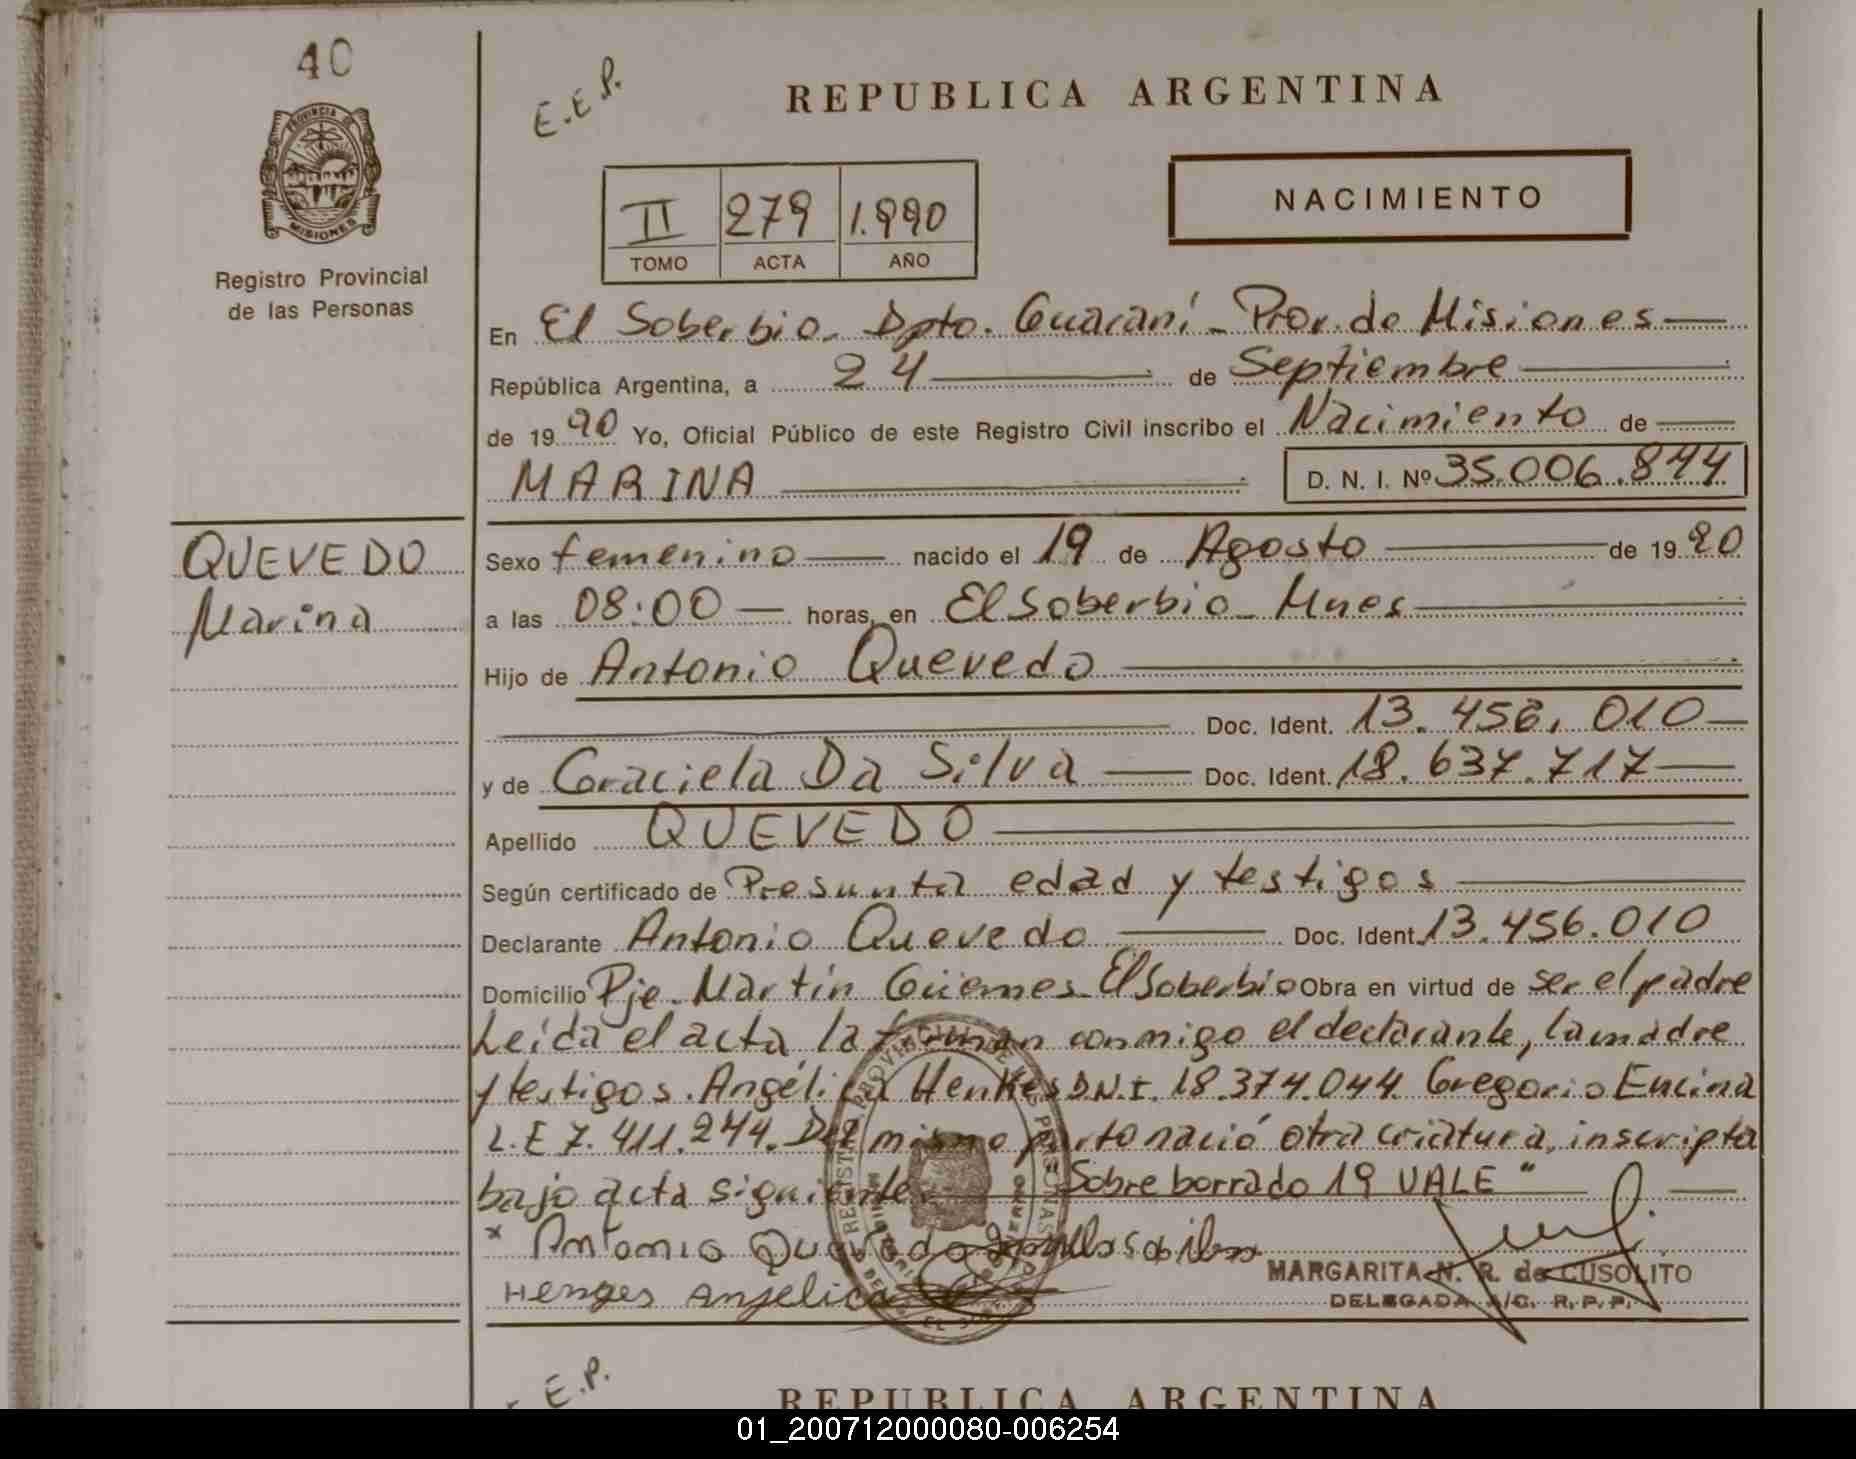 40
E.E.P.
REPUBLICA ARGENTINA
PROVINCIA DE
MISIONES
Registro Provincial
de las Personas
II 279 1.990
TOMO ACTA AÑO
NACIMIENTO
En El Soberbio. Dpto. Guaraní - Prov. de Misiones
República Argentina, a 24 de Septiembre
de 1990 Yo, Oficial Público de este Registro Civil inscribo el Nacimiento de
MARINA D. N. I. Nº 35.006.844
QUEVEDO
Marina
Sexo femenino nacido el 19 de Agosto de 1990
a las 08:00 horas, en El Soberbio - Mnes
Hijo de Antonio Quevedo
Doc. Ident. 13.456.010
y de Graciela Da Silva Doc. Ident. 18.637.717
Apellido QUEVEDO
Según certificado de Presunta edad y testigos
Declarante Antonio Quevedo Doc. Ident. 13.456.010
Domicilio Pje. Martín Güemes El Soberbio Obra en virtud de ser el padre
Leída el acta la firman conmigo el declarante, la madre
y testigos. Angélica Henkes D.N.I. 18.374.044. Gregorio Encina
L.E 7.411.244. Del mismo parto nació otra criatura, inscripta
bajo acta siguiente. Sobre borrado 19 VALE"
x Antonio Quevedo
MARGARITA N. R. de CUSOLITO
Henges Anjelica
DELEGADA A/C. R.P.P.
E.P.
REPUBLICA ARGENTINA
01_200712000080-006254